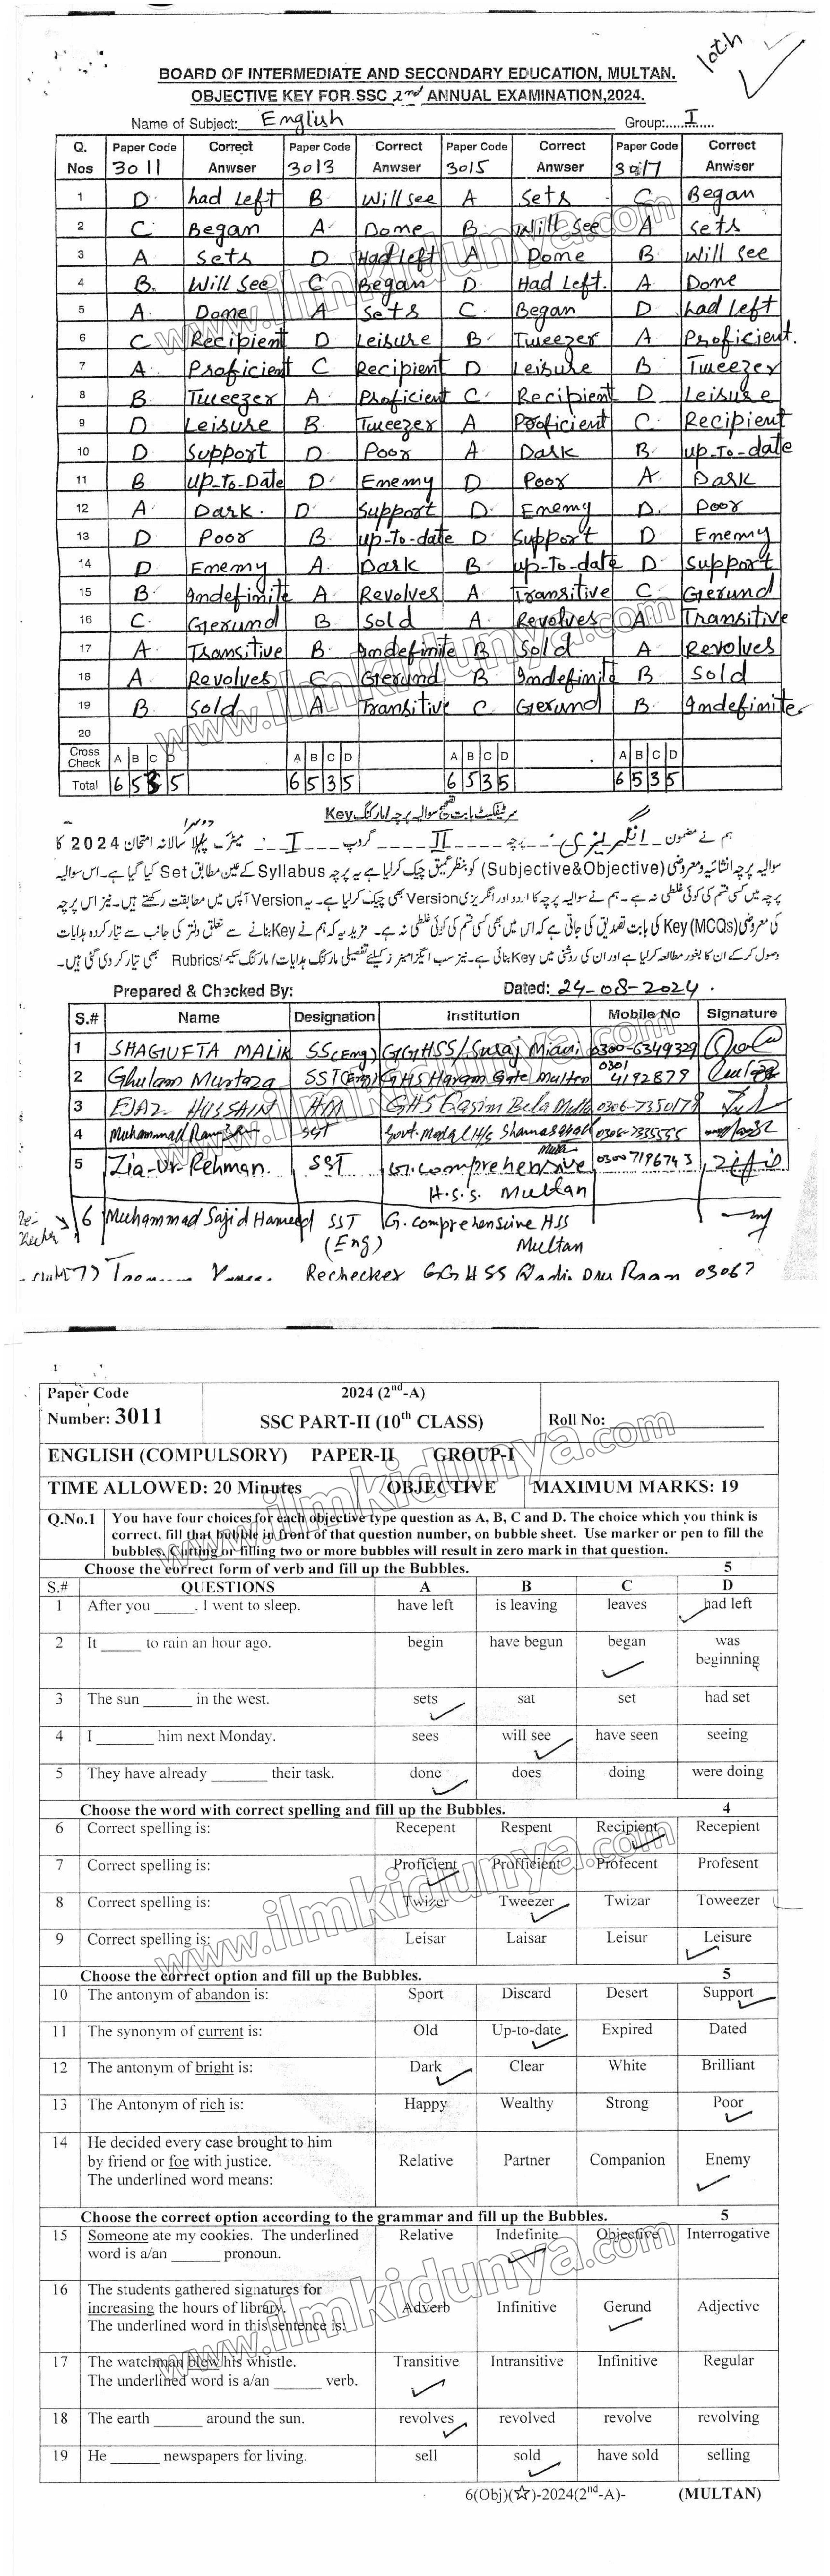 10th
BOARD OF INTERMEDIATE AND SECONDARY EDUCATION, MULTAN.
OBJECTIVE KEY FOR SSC 2nd ANNUAL EXAMINATION,2024.
Name of Subject: English Group:.....I......
Q. Nos Paper Code 3011 Correct Anwser Paper Code 3013 Correct Anwser Paper Code 3015 Correct Anwser Paper Code 3017 Correct Anwser
1 D had left B Will see A Sets C Began
2 C Began A Done B Will See A Sets
3 A Sets D Had left A Done B Will see
4 B. Will See C Began D Had Left. A Done
5 A Done A Sets C Began D had left
6 C Recipient D Leisure B Tweezer A Proficient.
7 A Proficient C Recipient D Leisure B Tweezer
8 B Tweezer A Proficient C Recipient D Leisure
9 D Leisure B Tweezer A Proficient C Recipient
10 D Support D Poor A Dark B up-To-date
11 B Up-To-Date D Enemy D Poor A Dark
12 A Dark. D Support D Enemy D. Poor
13 D Poor B up-To-date D Support D Enemy
14 D Enemy A Dark B up-To-date D Support
15 B Indefinite A Revolves A Transitive C Gerund
16 C Gerund B Sold A Revolves A Transitive
17 A Transitive B Indefinite B Sold A Revolves
18 A Revolves C Gerund B Indefinite B Sold
19 B Sold A Transitive C Gerund B Indefinite
20
Cross Check A B C D A B C D A B C D A B C D
Total 6 5 3 5 6 5 3 5 6 5 3 5 6 5 3 5
سرٹیفکیٹ بابت تصحیح سوالیہ پرچہ / مارکنگ Key
ہم نے مضمون انگریزی پرچہ II گروپ I میٹرک پہلا دوسرا سالانہ امتحان 2024 کا
سوالیہ پرچہ انشائیہ ومعروضی (Subjective&Objective) کو بنظر عمیق چیک کرلیا ہے یہ پرچہ Syllabus کے عین مطابق Set کیا گیا ہے۔ اس سوالیہ
پرچہ میں کسی قسم کی کوئی غلطی نہ ہے۔ ہم نے سوالیہ پرچہ کا اردو اور انگریزی Version بھی چیک کرلیا ہے۔ یہ Version آپس میں مطابقت رکھتے ہیں۔ نیز اس پرچہ
کی معروضی (MCQs) Key کی بابت تصدیق کی جاتی ہے کہ اس میں بھی کسی قسم کی کوئی غلطی نہ ہے۔ مزید یہ کہ ہم نے Key بنانے سے متعلق دفتر کی جانب سے تیار کردہ ہدایات
وصول کر کے ان کا بغور مطالعہ کرلیا ہے اور ان کی روشنی میں Key بنائی ہے۔ نیز سب ایگزامینرز کیلئے تفصیلی مارکنگ ہدایات / مارکنگ سکیم / Rubrics بھی تیار کر دی گئی ہیں۔
Prepared & Checked By: Dated: 24-08-2024.
S.# Name Designation Institution Mobile No Signature
1 SHAGUFTA MALIK SS(Eng) GGHSS/Suraj Miani 0300-6349329
2 Ghulam Murtaza SST(Eng) GHS Haram Gate Multan 0301 4192879
3 EJAZ HUSSAIN HM GHS Qasim Bela Multan 0306-7350179
4 Muhammad SST Govt. Model H/S
5 Zia-Ur-Rehman. SST Gr. Comprehensive H.S.S. Multan 03007196743
Re-checker 6 Muhammad Sajid Hameed SST (Eng) G. Comprehensive HSS Multan
Rechecker GGHSS
Paper Code Number: 3011 2024 (2nd-A) SSC PART-II (10th CLASS) Roll No:
ENGLISH (COMPULSORY) PAPER-II GROUP-I
TIME ALLOWED: 20 Minutes OBJECTIVE MAXIMUM MARKS: 19
Q.No.1 You have four choices for each objective type question as A, B, C and D. The choice which you think is
correct, fill that bubble in front of that question number, on bubble sheet. Use marker or pen to fill the
bubbles. Cutting or filling two or more bubbles will result in zero mark in that question.
Choose the correct form of verb and fill up the Bubbles. 5
S.# QUESTIONS A B C D
1 After you _____. I went to sleep. have left is leaving leaves had left
2 It _____ to rain an hour ago. begin have begun began was beginning
3 The sun ______ in the west. sets sat set had set
4 I _______ him next Monday. sees will see have seen seeing
5 They have already _______ their task. done does doing were doing
Choose the word with correct spelling and fill up the Bubbles. 4
6 Correct spelling is: Recepent Respent Recipient Recepient
7 Correct spelling is: Proficient Profficient Profecent Profesent
8 Correct spelling is: Twizer Tweezer Twizar Toweezer
9 Correct spelling is: Leisar Laisar Leisur Leisure
Choose the correct option and fill up the Bubbles. 5
10 The antonym of abandon is: Sport Discard Desert Support
11 The synonym of current is: Old Up-to-date Expired Dated
12 The antonym of bright is: Dark Clear White Brilliant
13 The Antonym of rich is: Happy Wealthy Strong Poor
14 He decided every case brought to him
by friend or foe with justice. Relative Partner Companion Enemy
The underlined word means:
Choose the correct option according to the grammar and fill up the Bubbles. 5
15 Someone ate my cookies. The underlined Relative Indefinite Objective Interrogative
word is a/an ______ pronoun.
16 The students gathered signatures for
increasing the hours of library. Adverb Infinitive Gerund Adjective
The underlined word in this sentence is:
17 The watchman blew his whistle. Transitive Intransitive Infinitive Regular
The underlined word is a/an ______ verb.
18 The earth ______ around the sun. revolves revolved revolve revolving
19 He ______ newspapers for living. sell sold have sold selling
6(Obj)(☆)-2024(2nd-A)- (MULTAN)
www.ilmkidunya.com